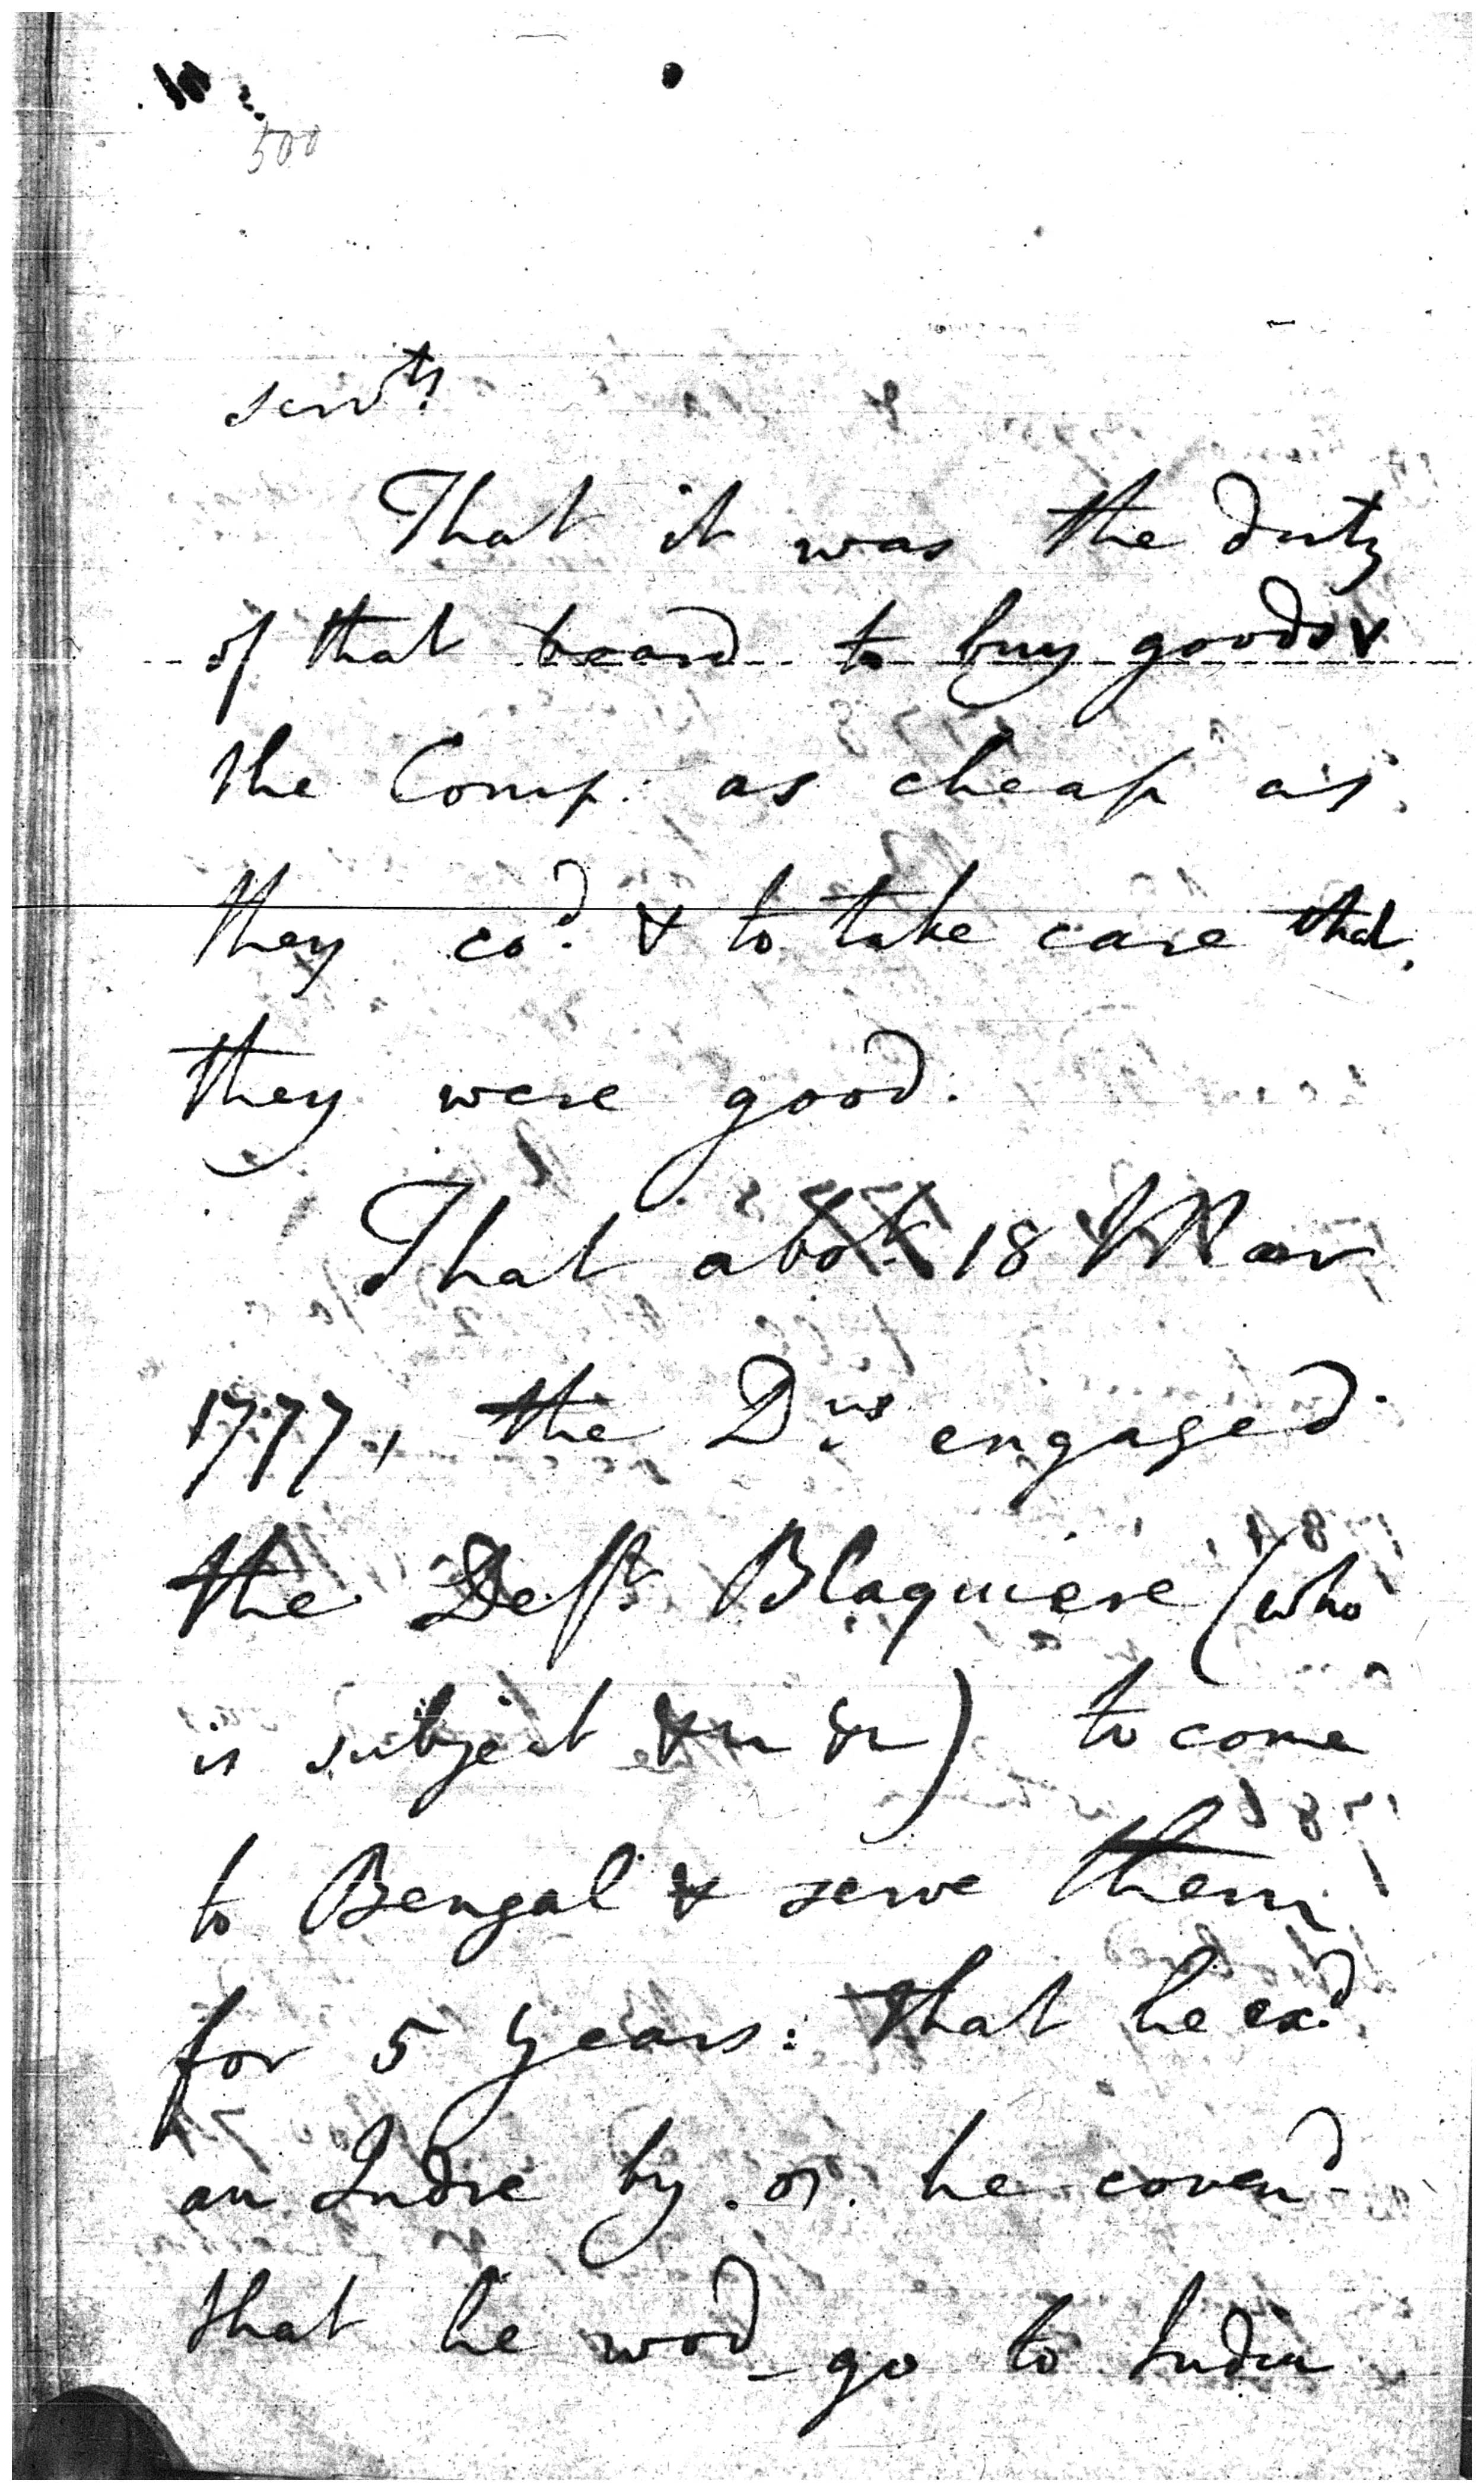 500
servts
That it was the duty
of that board to buy goods &
the Comp. as cheap as
they cod. & to take care that
they were good.
That abot 18 Mar
1777, the Drs engaged
the Deft Blaquiere (who
is subject &c &c) to come
to Bengal & serve them
for 5 years: that he exd
an Indre by wh he covend
that he wod go to India